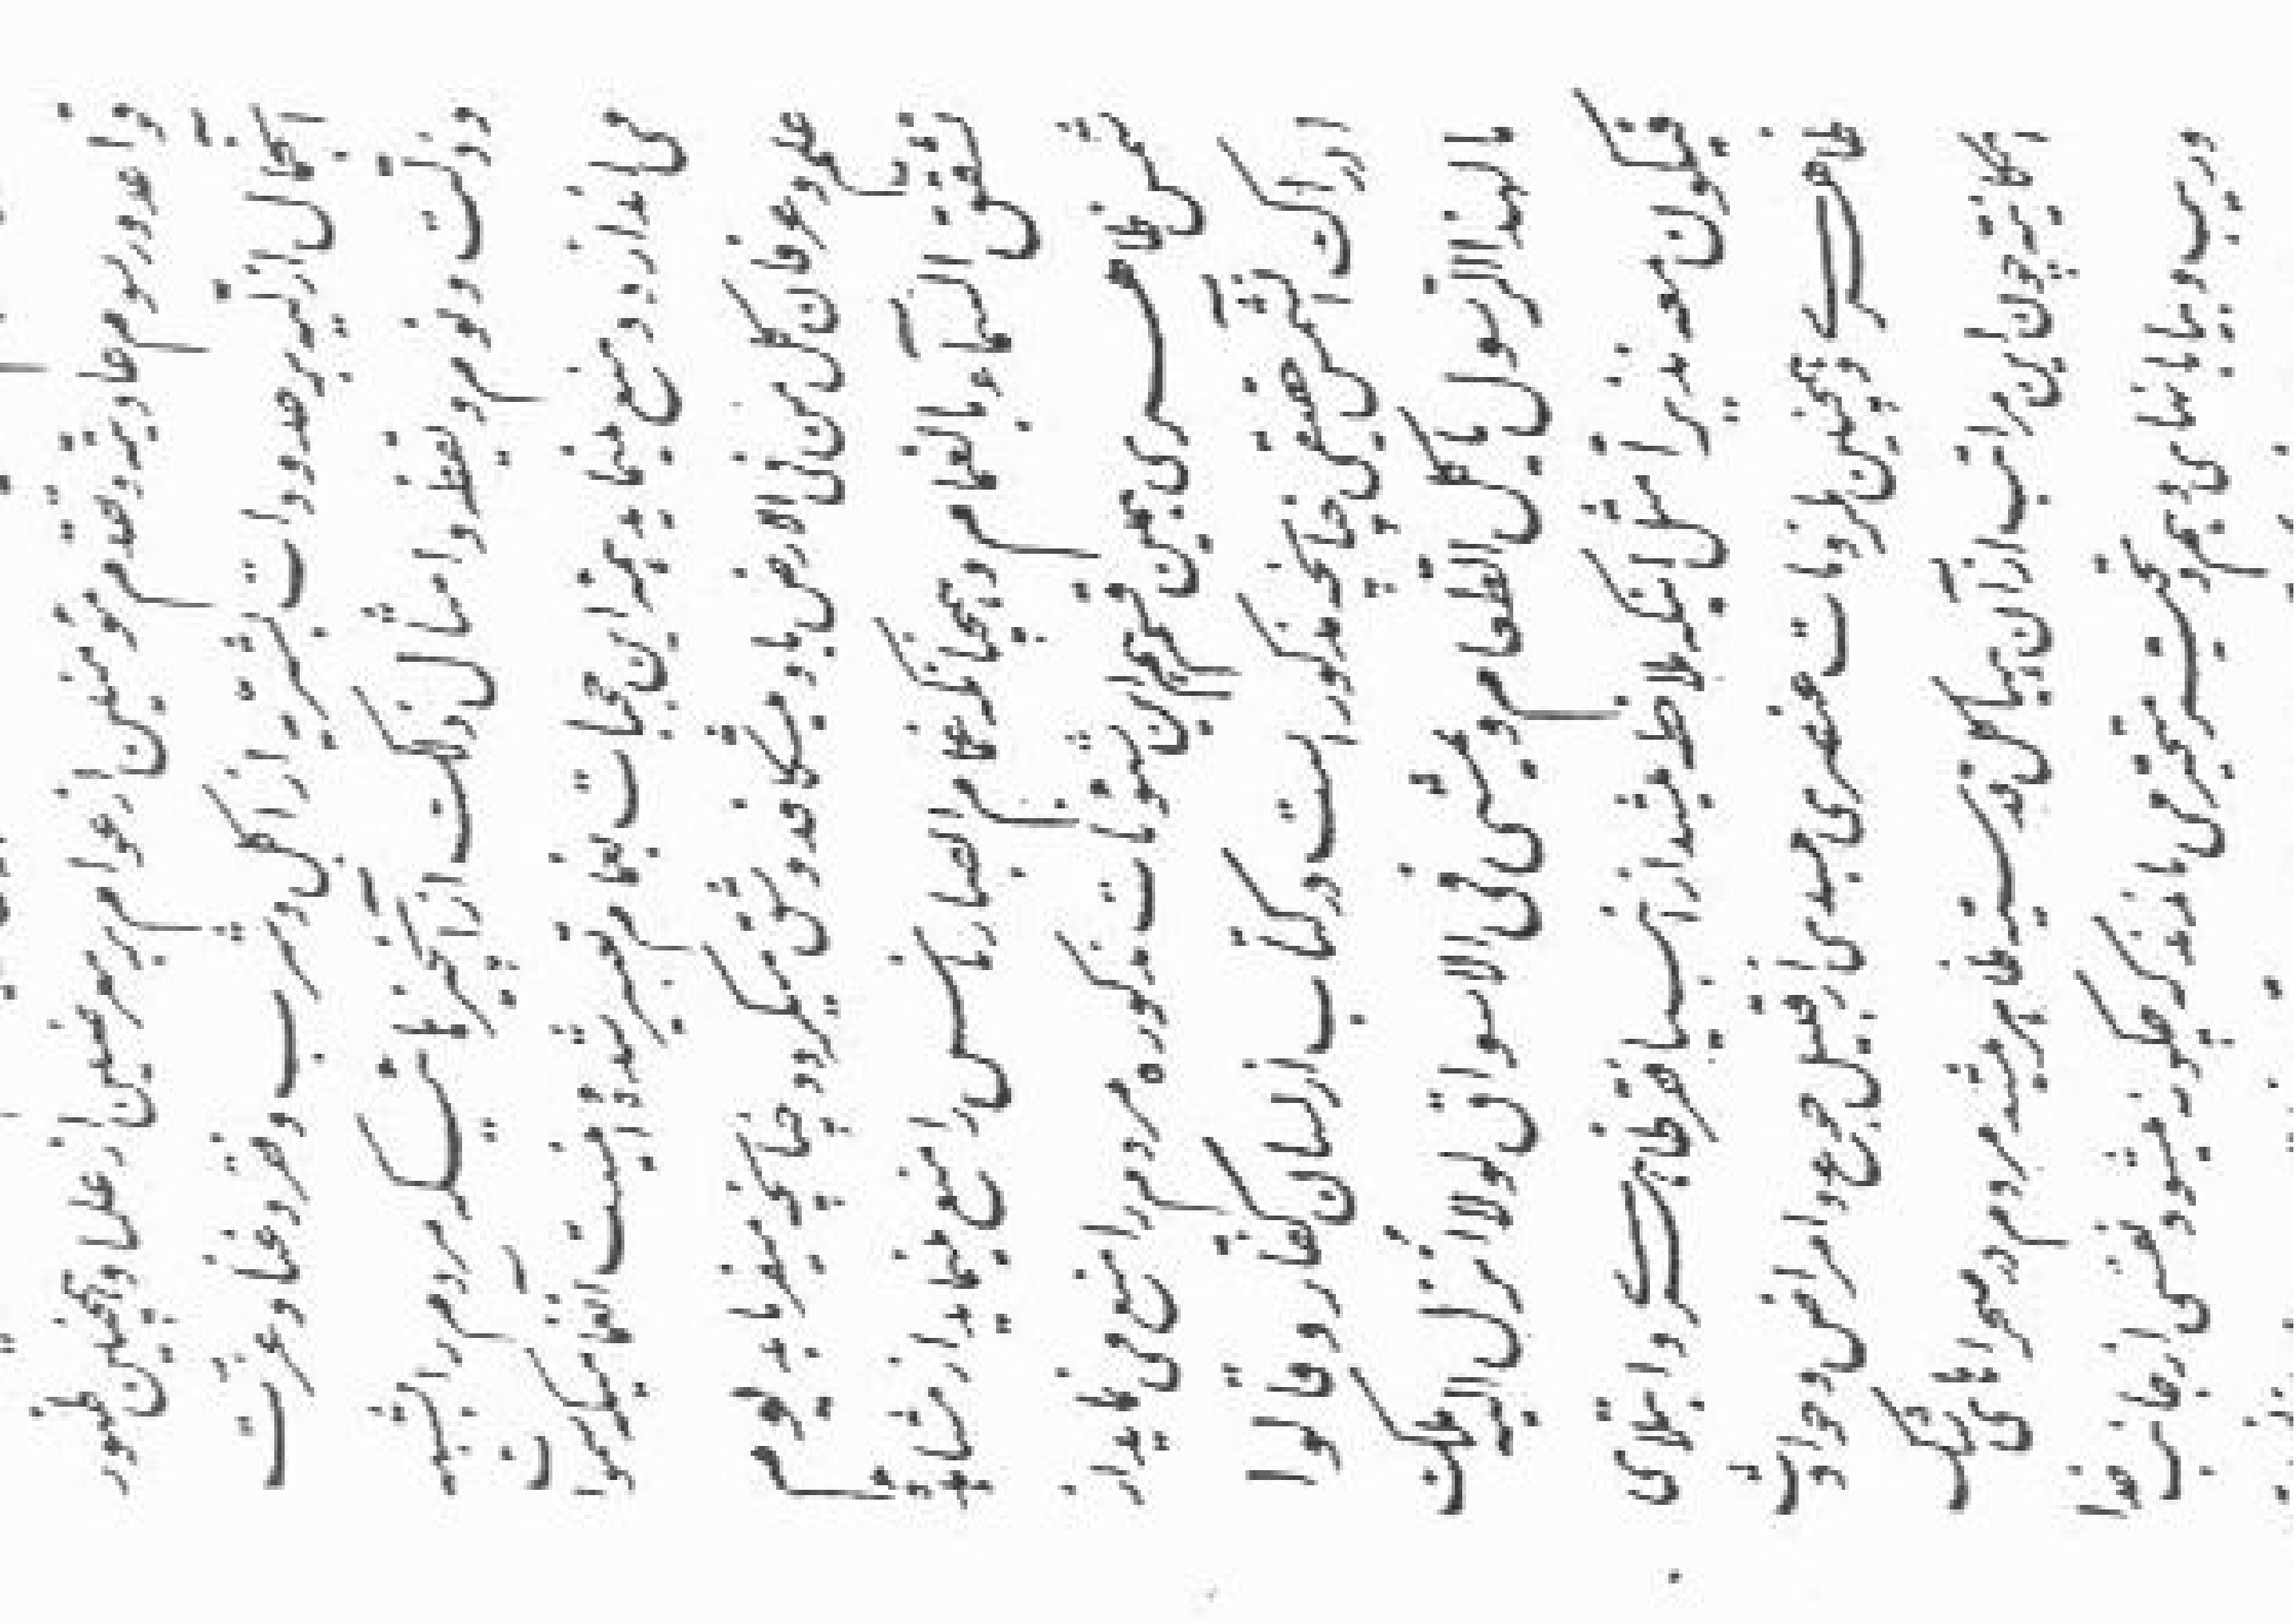 قواعد و رسوم عادیه و تقدم مؤمنین از عوام بر معرضین از علما و همچنین ظهور
آنجمال ازلیه بر حدودات بشریه از اکل و شرب و فقر و غنا و عزت
و ذلت و نوم و یقظه و امثال ذلک از آنچیزهائیکه مردم را بشبهه
می اندازد و منع مینماید همه این حجبات بغمام تعبیر شده و اینست آن غمامیکه سموات
علم و عرفان کل من فی الارض باو میشکافد و شق میگردد چنانچه میفرماید یوم
تشقق السّمآء بالغمام و همچنانکه غمام ابصار ناس را منع مینماید از مشاهده
شمس ظاهری همین قسم هم این شئونات مذکوره مردم را منع مینماید از
ادراک آن شمس حقیقی چنانچه مذکور است در کتاب از لسان کفّار و قالوا
ما لهذا الرّسول یأکل الطّعام و یمشی فی الاسواق لولا انزل الیه ملک
فیکون معه نذیراً مثل اینکه ملاحظه میشد از انبیا فقر ظاهری و ابتلای
ظاهری و همچنین ملزومات عنصری جسدی از قبیل جوع و امراض و حوادث
امکانیه چون این مراتب از آن هیاکل قدسیه ظاهر میشد مردم در صحراهای شک
و ریب و بیابانهای وهم و تحیر متحیر میماندند که چگونه میشود نفسی از جانب خدا